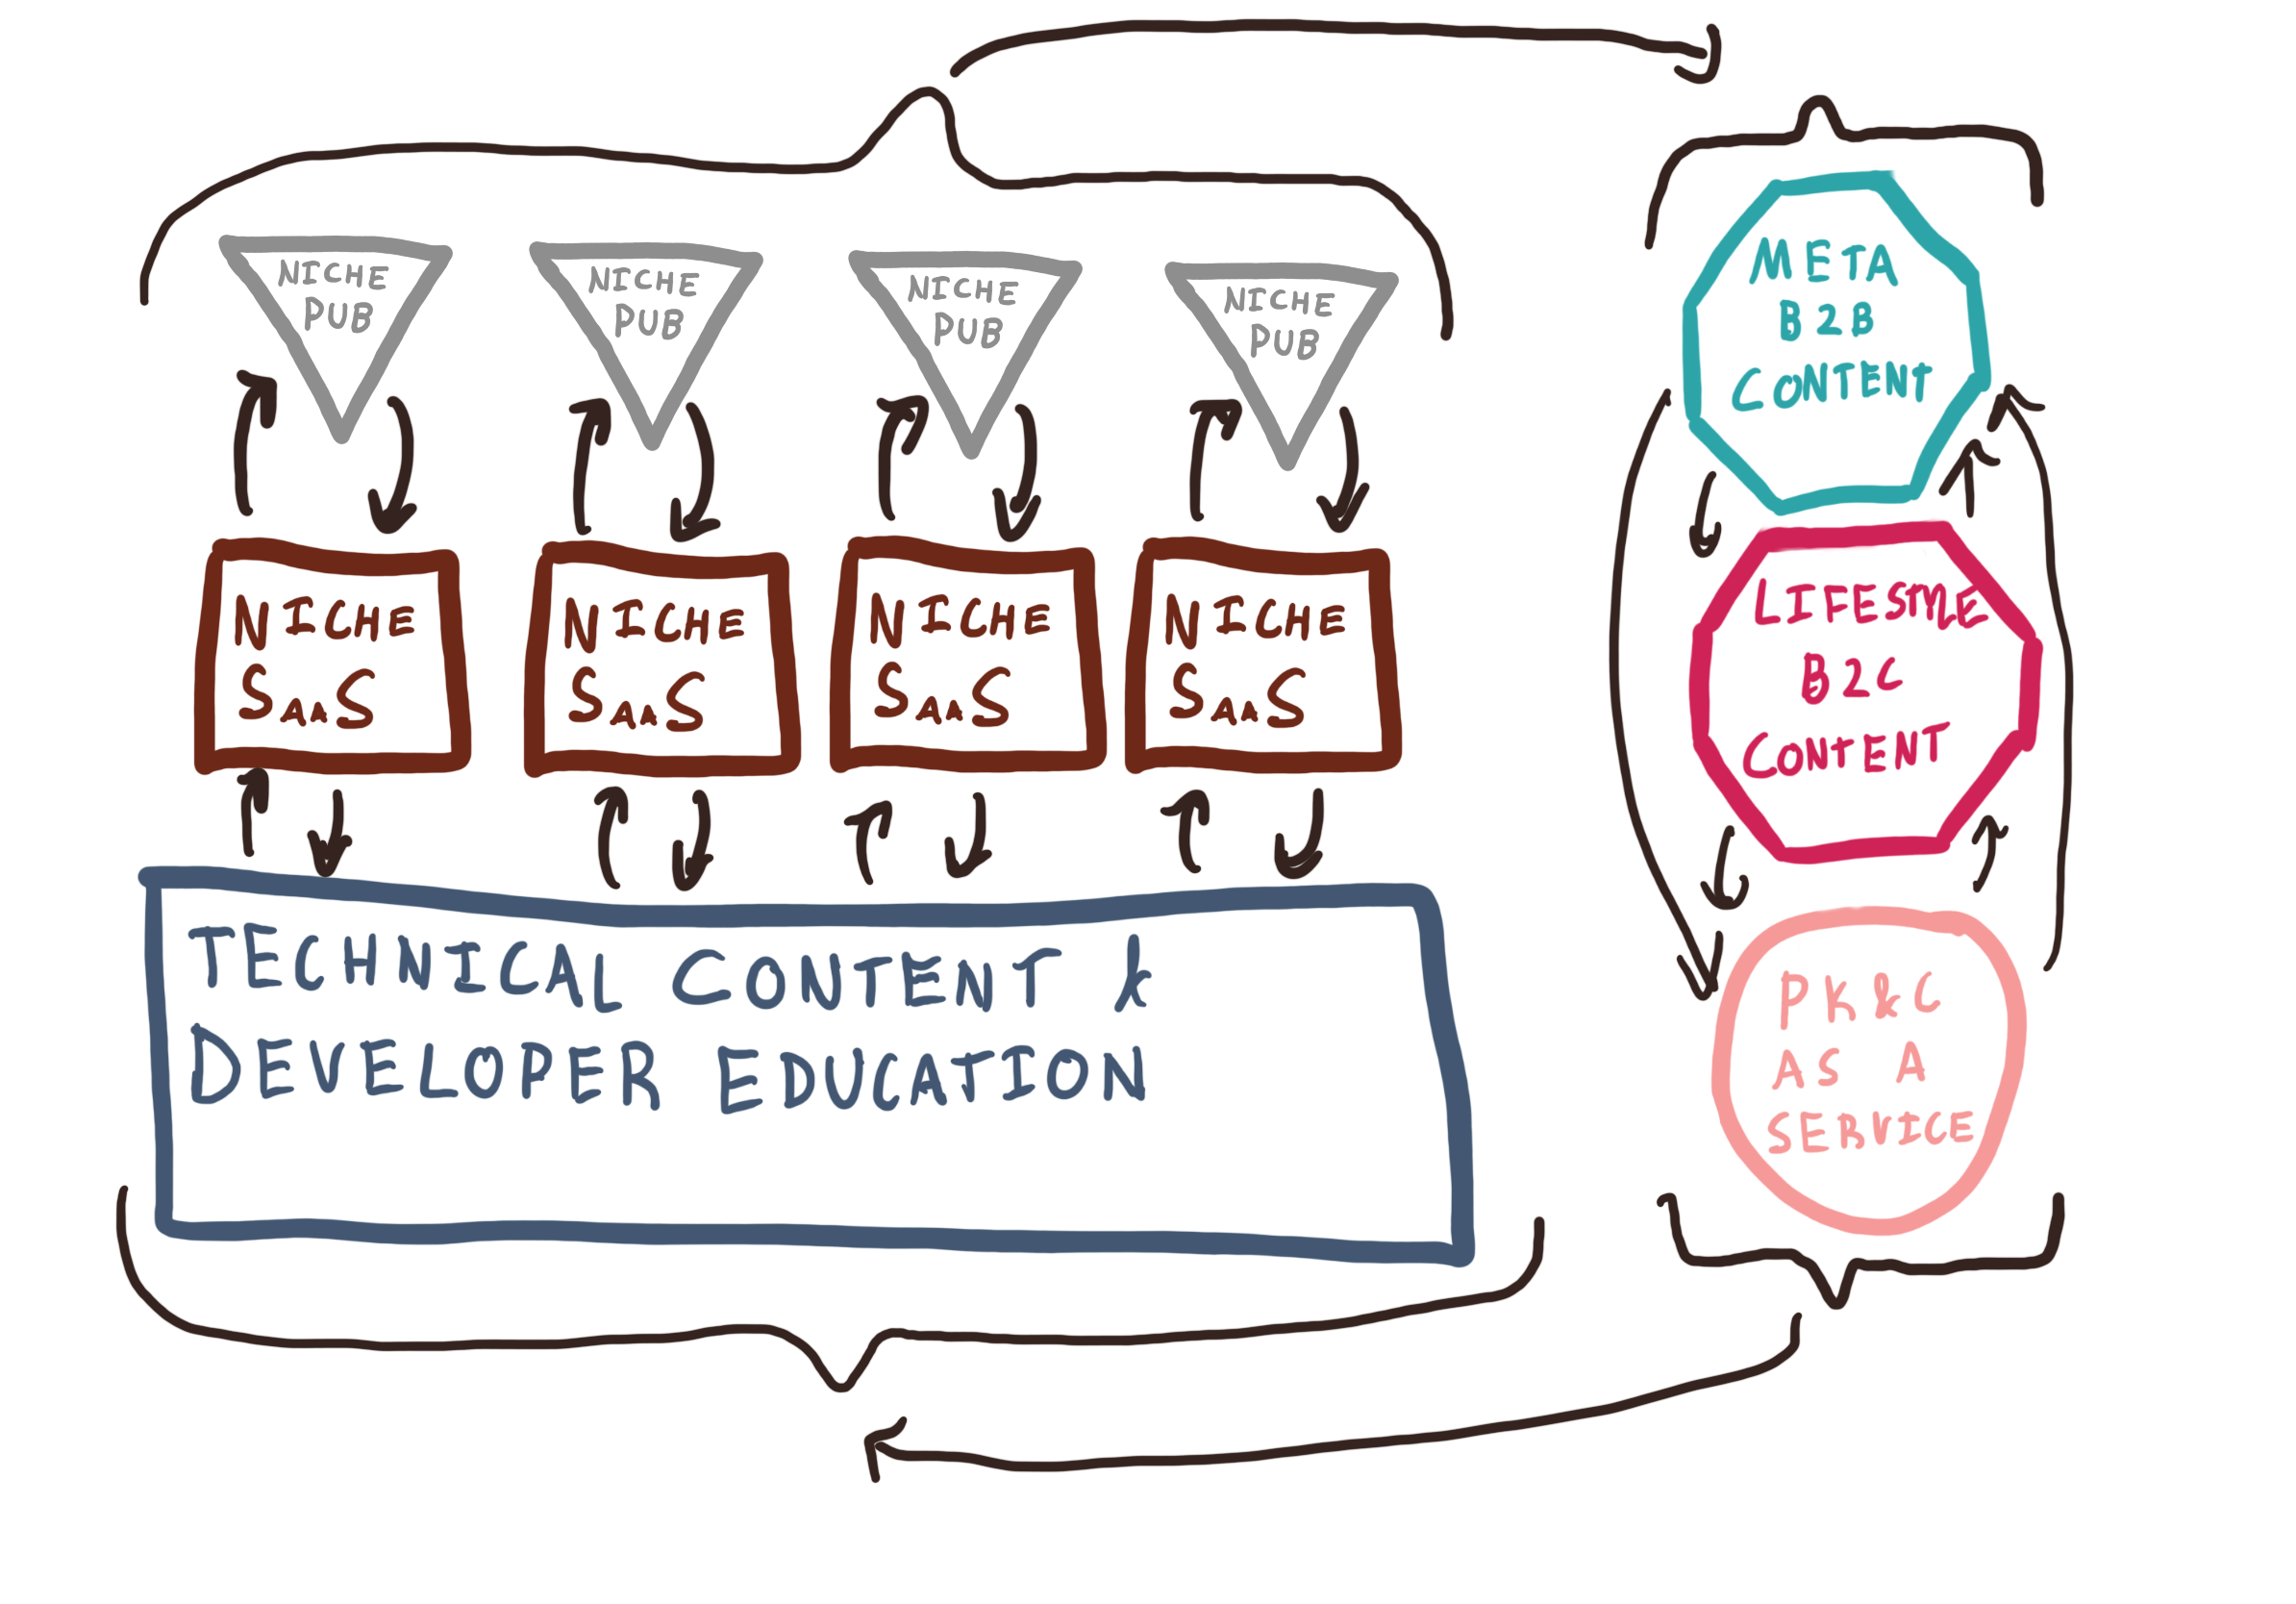 NICHE
PUB
NICHE
PUB
NICHE
PUB
NICHE
PUB
NICHE
SaaS
NICHE
SaaS
NICHE
SaaS
NICHE
SaaS
TECHNICAL CONTENT &
DEVELOPER EDUCATION
META
B2B
CONTENT
LIFESTYLE
B2C
CONTENT
PK&C
AS A
SERVICE